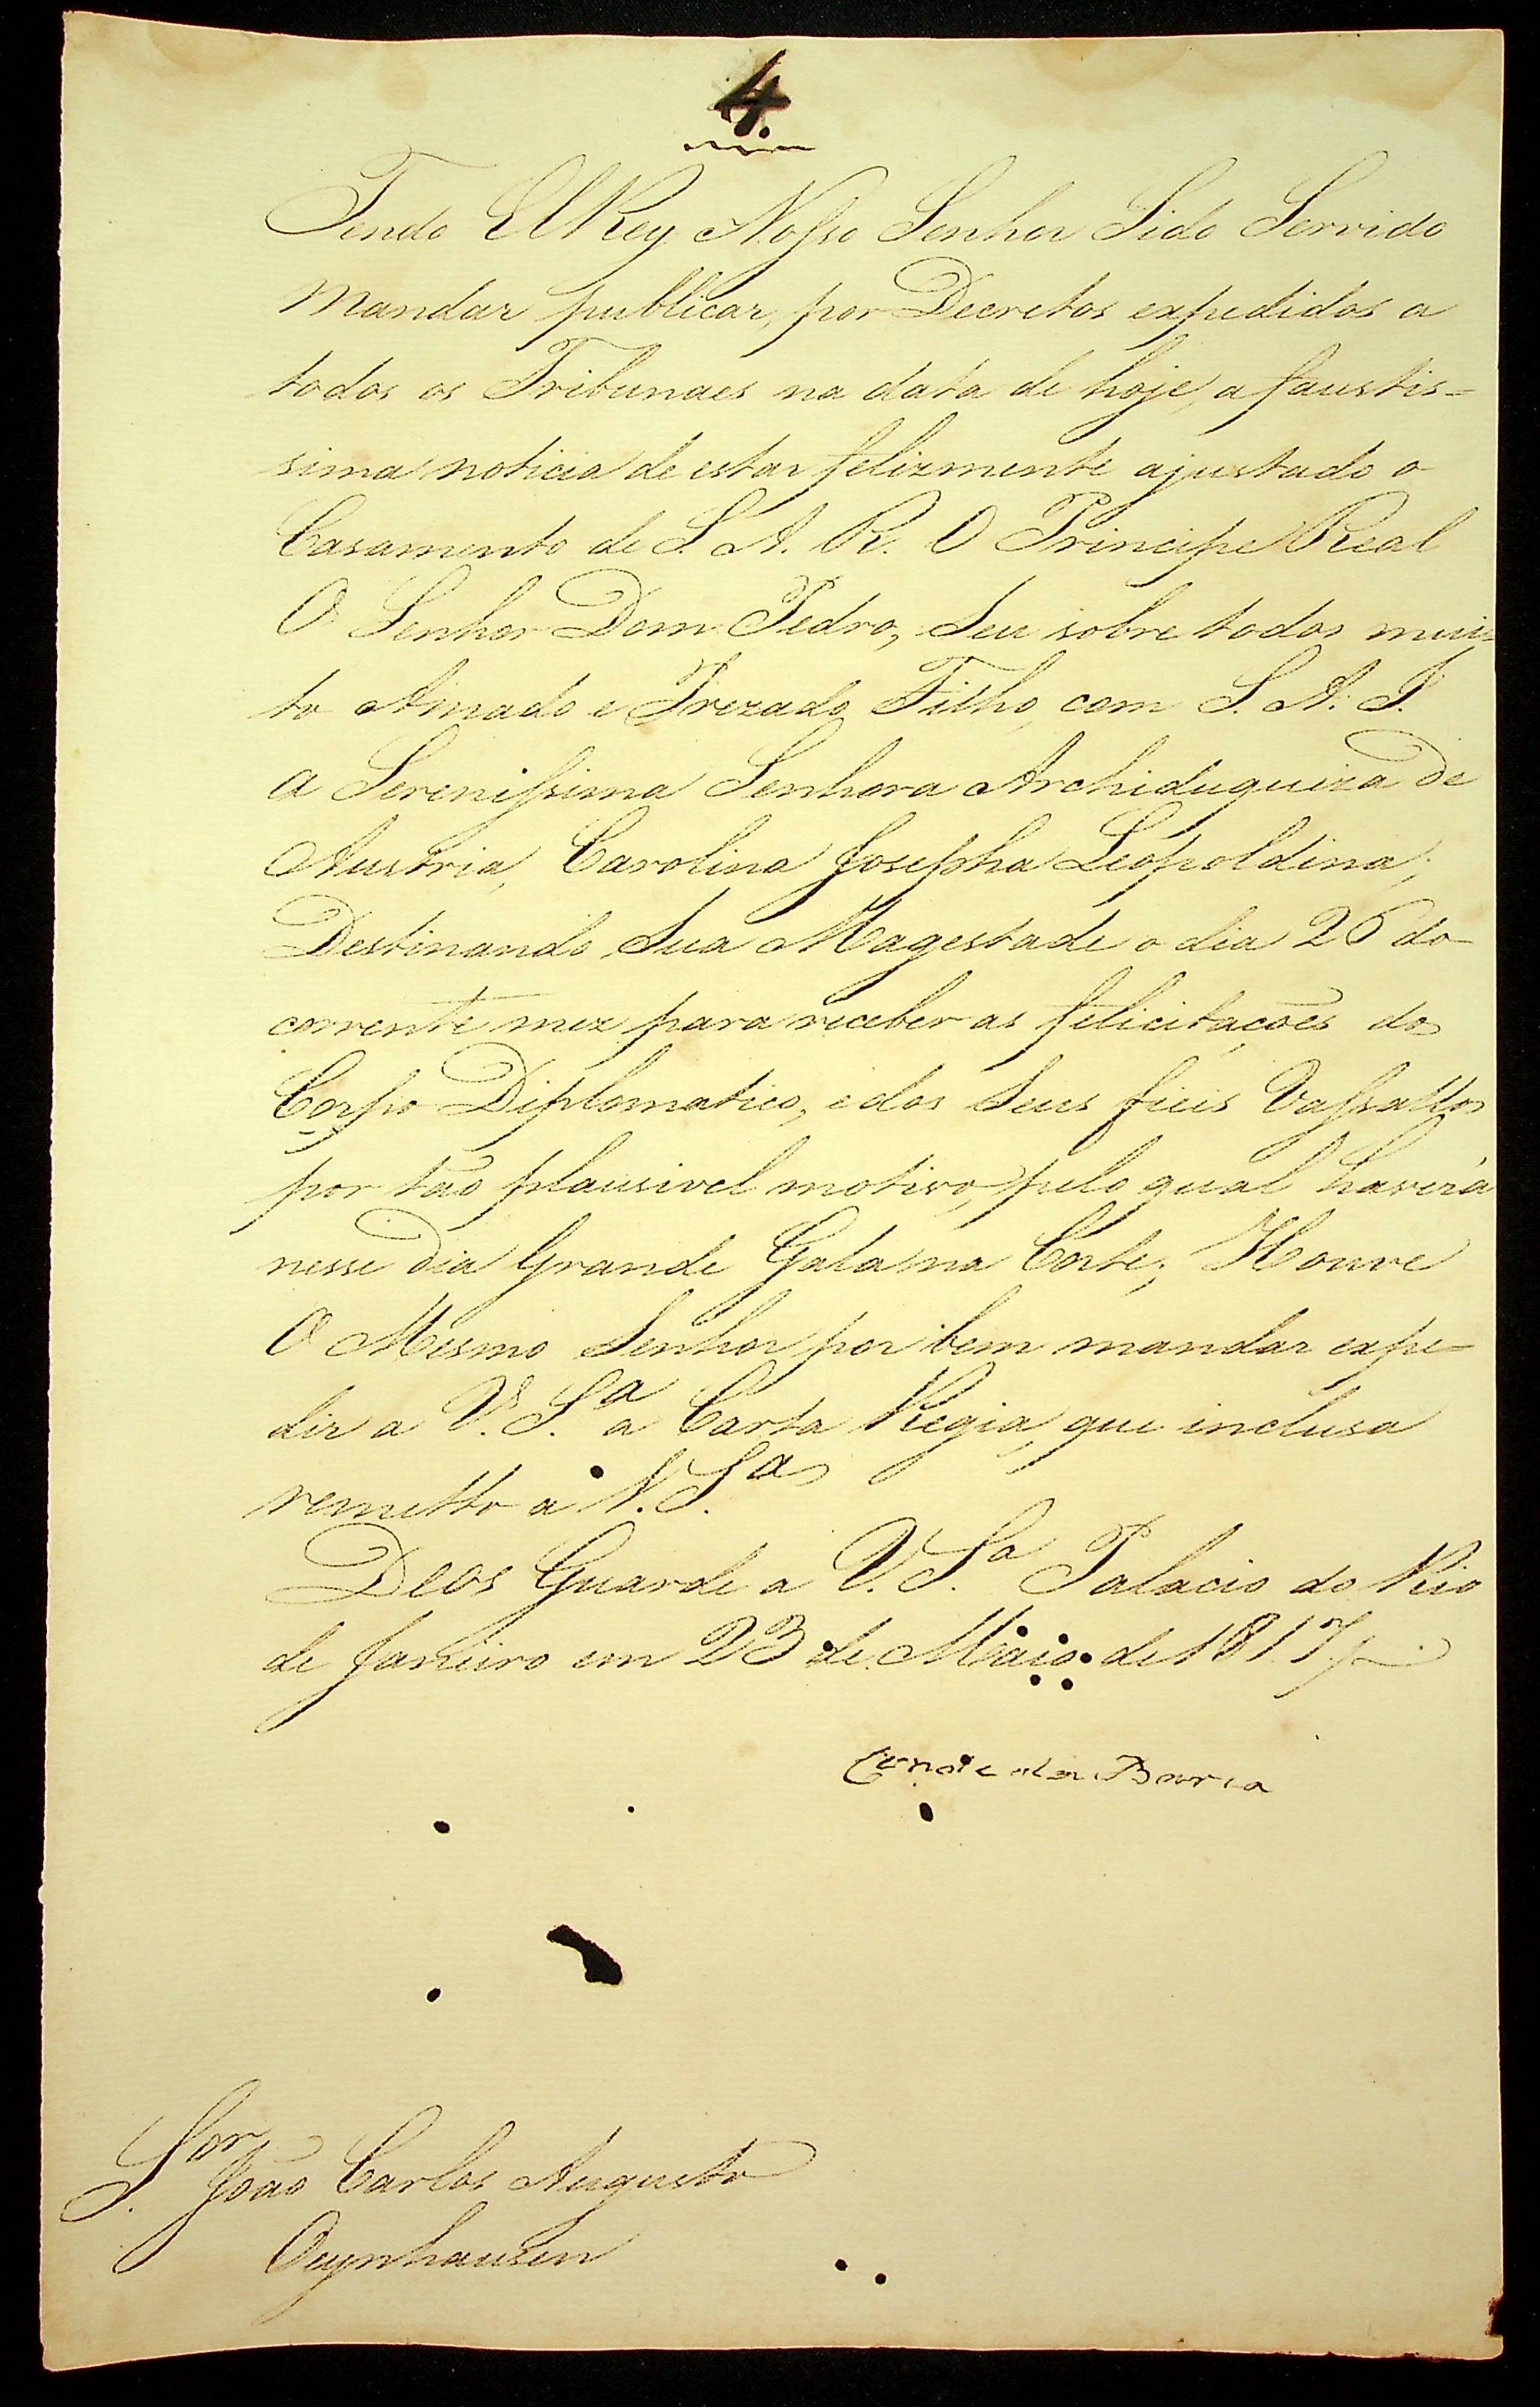 4.
Tendo ElRey Nosso Senhor Sido Servido
mandar publicar, por Decretos expedidos a
todos os Tribunaes na data de hoje, a faustis=
sima noticia de estar felizmente ajustado o
Casamento de S. A. R. O Principe Real
O Senhor Dom Pedro, Seu sobre todos mui=
to Amado e Prezado Filho, com S. A. I.
a Serenissima Senhora Archiduqueiza de
Austria, Carolina Josepha Leopoldina;
Destinando Sua Magestade o dia 26 do
corrente mez para receber as felicitações do
Corpo Diplomatico, e dos Seus fieis Vassallos
por tão plausivel motivo, pelo qual haverá
nesse dia Grande Gala na Corte; Houve
O Mesmo Senhor por bem mandar expe=
dir a V. S.ª a Carta Regia, que inclusa
remetto a V. S.ª
Deos Guarde a V. S.ª Palacio do Rio
de Janeiro em 23 de Maio de 1817
Conde da Barca
S.or João Carlos Augusto
Oeynhausen